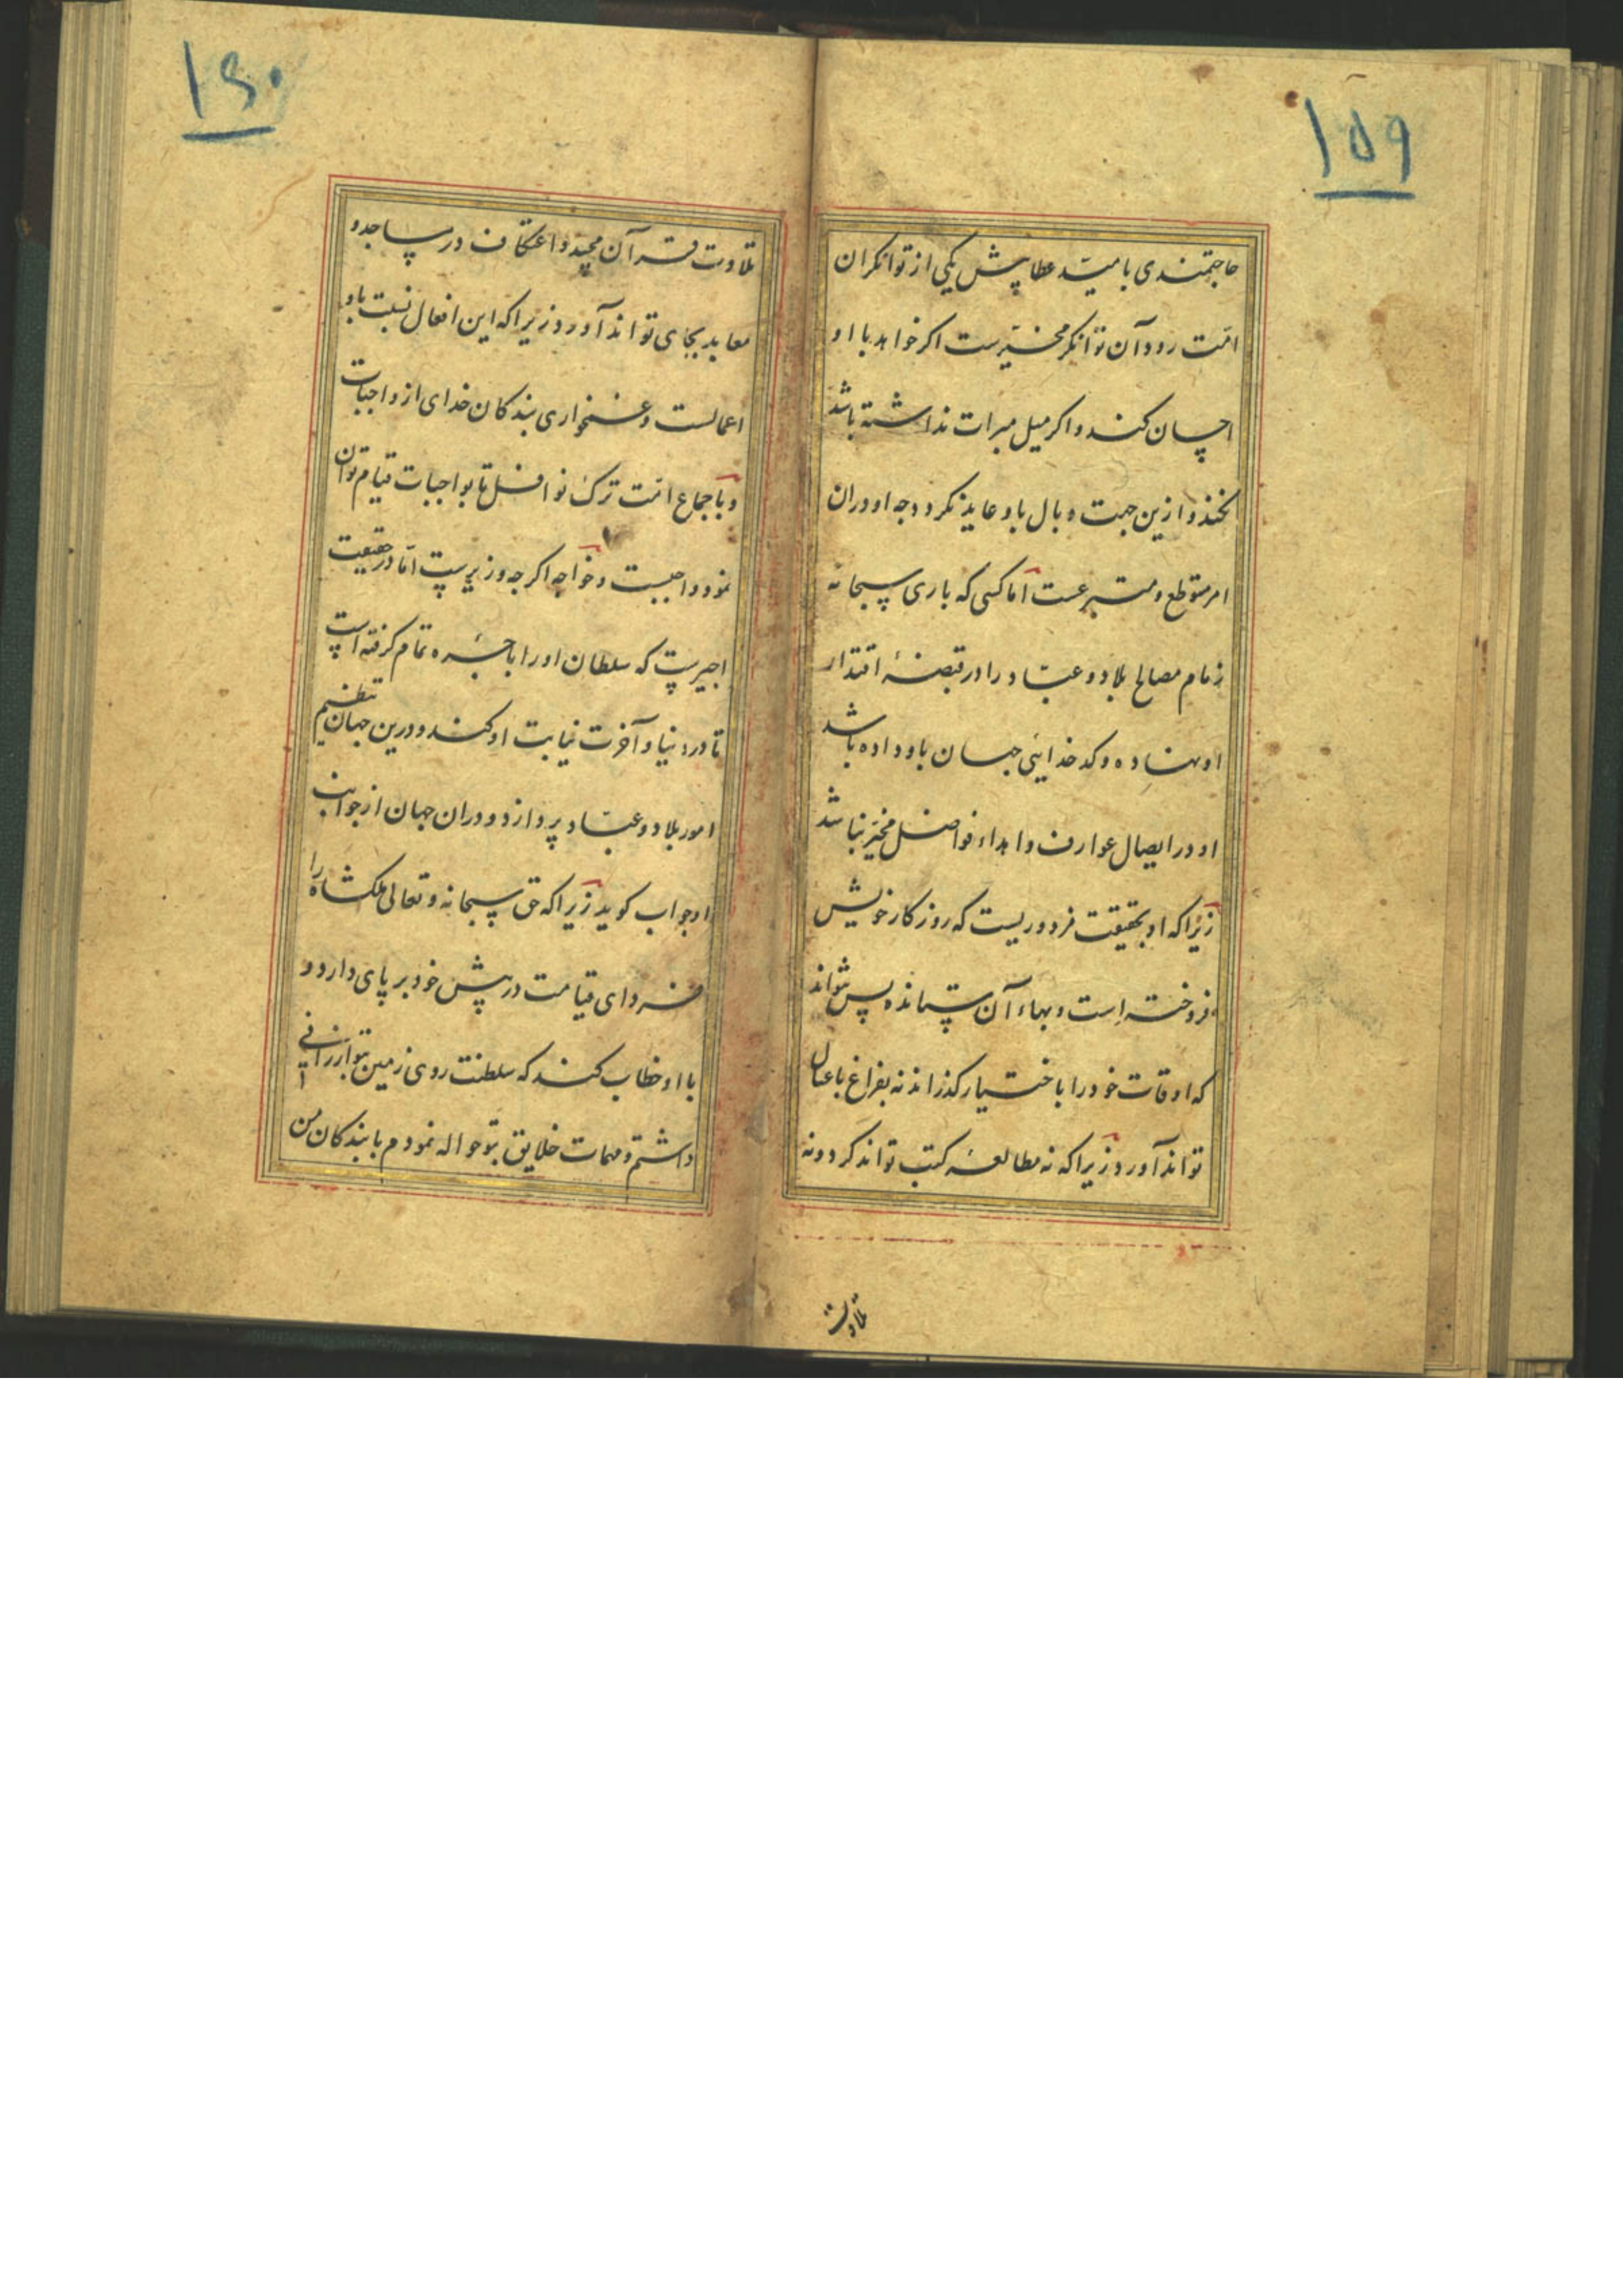 ۱۵۹
حاجتمندی بامید عطا پیش یکی از توانکران
امت رود آن توانکر مخیرست اکر خواهد با او
احسان کند و اکر میل مبرات نداشته باشد
نکند و ازین جهت وبال باو عاید نکردد چه او دران
امر متطوع و متبرعست اما کسی که باری سبحانه
زمام مصالح بلاد و عباد را در قبضهٔ اقتدار
او نهاده و کدخدایی جهان باو داده باشد
او در ایصال عوارف و اهداء فواضل مخیر نباشد
زیرا که او بحقیقت مزدوریست که روزکار خویش
فروخته است و بهاء آن ستمانده پس نتواند
که اوقات خود را باختیار کذراند نه بفراغ باعمال
تواند آورد زیرا که نه مطالعهٔ کتب تواند کرد و نه
تلاوت
۱۶۰
تلاوت قرآن مجید و اعتکاف در مساجد و
معابد بجای تواند آورد زیرا که این افعال نسبت باو
اعمالست و غمخواری بندکان خدای از واجبات
و باجماع امت ترک نوافل تا بواجبات قیام توان
نمود واجبست و خواجه اکر چه وزیرست اما در حقیقت
اجیرست که سلطان او را باجرهٔ تمام کرفته است
تا در دنیا و آخرت نیابت او کند و درین جهان بتنظیم
امور بلاد و عباد پردازد و دران جهان از جوانب
او جواب کوید زیرا که حق سبحانه و تعالی ملکشاه را
فردای قیامت در پیش خود بر پای دارد و
با او خطاب کند که سلطنت روی زمین بتو ارزانی
داشتم و مهمات خلایق بتو حواله نمودم با بندکان من